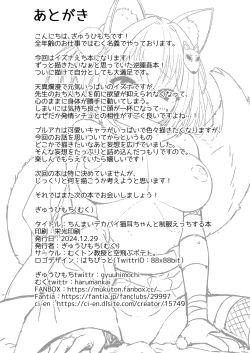 あとがき
こんにちは、ぎゅうひもちです！
全年齢のお仕事ではむく名義でやっております。
今回はイズナえち本になります！
ずっと描きたいなぁと思っていた逆睡姦本！
ついに描けて自分としても大満足です。
天真爛漫で元気いっぱいのイズナですが、
先生のおちんちんを前に欲望が抑えられなくなって、
心のままに身体が勝手に動いてしまう。
しまいには気持ち良すぎて頭が一杯になって…。
なぜだか発情シチュとの相性がすごく良いですよね…
ブルアカは可愛いキャラがいっぱいで色々描きたくなりますが、
今回のお話を思いついてからというもの
どこかで描きたいなあと妄想を広げていました。
そんな妄想をたっぷりと詰め込んだつもりですので、
楽しんでもらえていたら嬉しいです！
次回の本は特に決めていませんが、
じっくりと何を描こうか考えようと思います！
それではまた次の本でお会いしましょう！
ぎゅうひもち(むく)
タイトル：ちんまいデカパイ猫耳ちゃんと制服えっちする本
印刷：栄光印刷
発行日：2024.12.29
発行者：ぎゅうひもち(むく)
サークル：むくトン教授と空飛ぶポエト。
ロゴデザイン：はちぴっと(TwitterID：88x88bit)
ぎゅうひもちtwittr：gyuuhimochi
むくtwittr：harumankai
FANBOX：https://mukuton.fanbox.cc/
Fantia：https://fantia.jp/fanclubs/29997
ci-en：https://ci-en.dlsite.com/creator/15749